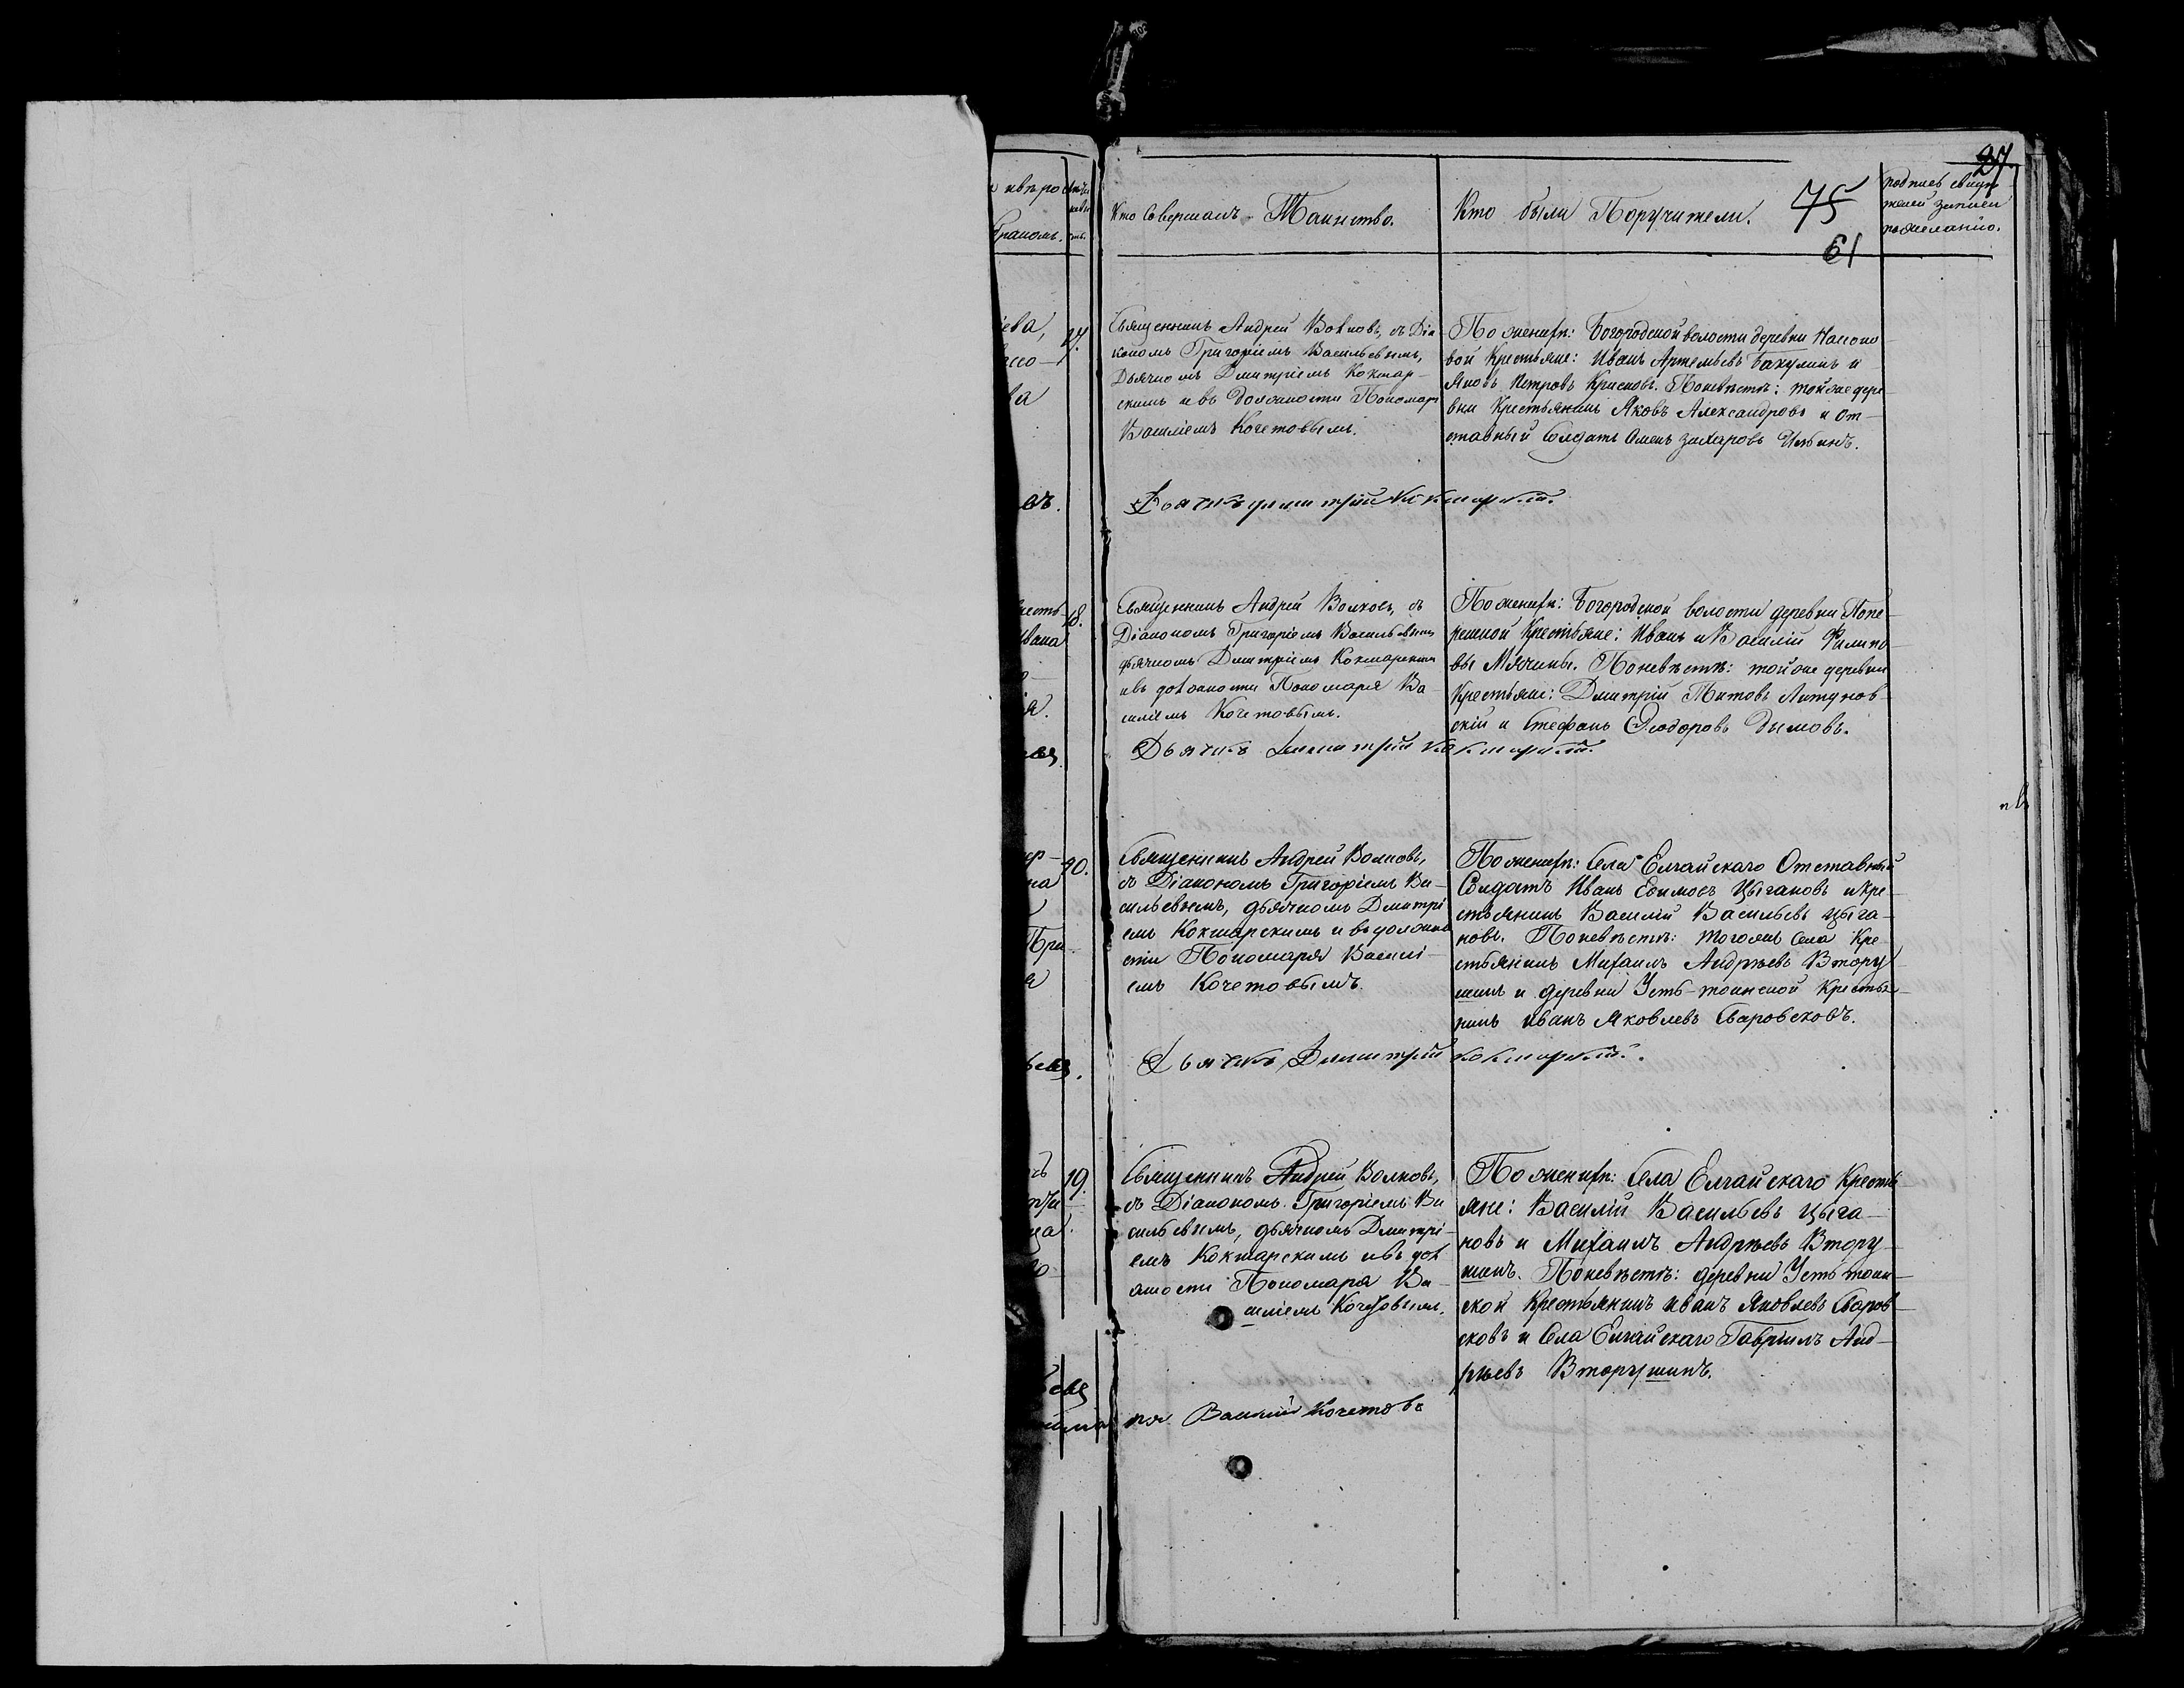 27.
Кто Совершалъ Таинство.
Кто были Поручители.
75
61
подпись свидѣ-
телей записи
по желанію.
27.
Священникъ Андрей Волковъ, съ Діа-
кономъ Григоріемъ Васильевымъ,
Дьячкомъ Дмитріемъ Кокшар-
скимъ и въ должности Пономаря
Василіемъ Кочетовымъ.
По женихѣ: Богородской волости деревни
вой Крестьяне: Иванъ Артемьевъ Бакулинъ и
Яковъ Петровъ. По невѣстѣ: той же дере-
вни Крестьянинъ Яковъ Александровъ и От-
ставный Солдатъ Захаровъ Ильинъ.
Дьячекъ Димитрій Кокшарскій.
18.
Священникъ Андрей Волковъ, съ
Діакономъ Григоріемъ Васильевымъ
дьячкомъ Дмитріемъ Кокшарскимъ
и въ должности Пономаря Ва-
силіемъ Кочетовымъ.
По женихѣ: Богородской волости деревни Попе-
речной Крестьяне: Иванъ и Василій Филипо-
вы Мячины. По невѣстѣ: той же деревни
Крестьяне: Дмитрій Титовъ Лятунов-
скій и Стефанъ Ѳеодоровъ Дымовъ.
Дьячекъ Димитрій Кокшарскій.
40.
Священникъ Андрей Волковъ,
съ Діакономъ Григоріемъ Ва-
сильевымъ, дьячкомъ Дмитрі
емъ Кокшарскимъ и въ должно
сти Пономаря Василі-
емъ Кочетовымъ.
По женихѣ: Села Елгайскаго Отставный
Солдатъ Иванъ Ефимовъ Цыгановъ и кре-
стьянинъ Василій Васильевъ Цыга-
новъ. По невѣстѣ: тогожъ Села Кре-
стьянинъ Михаилъ Андрѣевъ Втору
шинъ и деревни Усть-тоинской Крестья-
нинъ Иванъ Яковлевъ Сваровсковъ.
Дьячекъ Димитрій Кокшарскій.
19.
Священникъ Андрей Волковъ,
съ Діакономъ Григоріемъ Ва
сильевымъ, дьячкомъ Дмитрі-
емъ Кокшарскимъ и въ дол
жности Пономаря Ва-
силіемъ Кочетовымъ.
По женихѣ: Села Елгайскаго Кресть
яне: Василій Васильевъ Цыга-
новъ и Михаилъ Андрѣевъ Втору-
шинъ. По невѣстѣ: деревни Усть тоин-
ской Крестьянинъ Иванъ Яковлевъ Сваров-
сковъ и Села Елгайскаго Гавріилъ Анд-
рѣевъ Вторушинъ.
Василій Кочетовъ